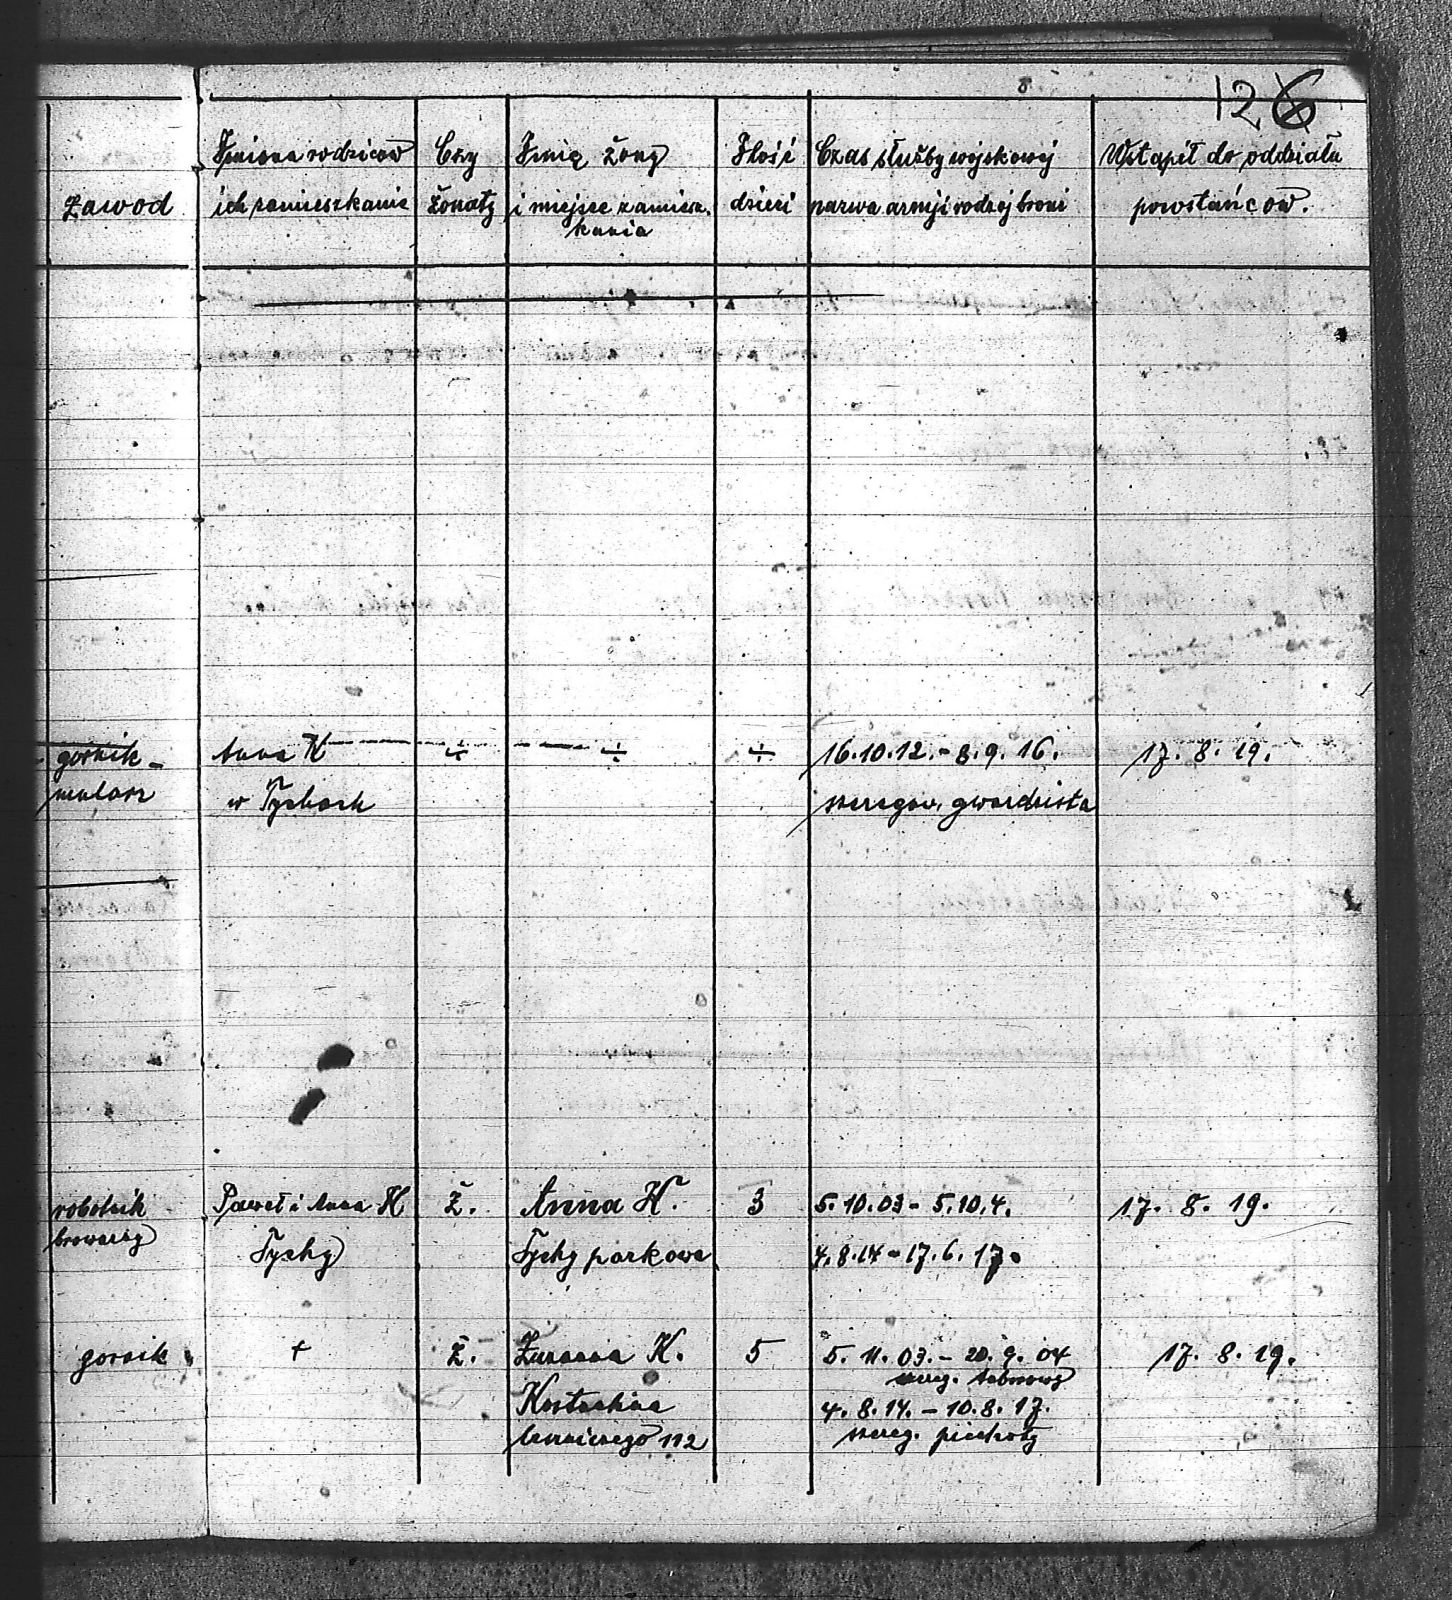 126
zawod
Imiona rodziców
ich zamieszkanie
Czy
żonaty
Imię żony
i miejsce zamiesz.
kania
Ilość
dzieci
Czas służby wojskowej
nazwa armji rodzaj broni
Wstąpił do oddziału
powstańców.
gornik -
malarz
Anna K
w Tychach
÷
÷
÷
16.10.12. - 8.9.16.
szeregow. gwardzista
17. 8. 19.
robotnik
browarny
Paweł i Anna K
Tychy
ż.
Anna K.
Tychy parkowa
3
5.10.03 - 5.10.4.
4.8.14 - 17.6.17.
17. 8. 19.
gornik
+
ż.
Zuzanna K.
Kostuchna
112
5
5. 11. 03. - 20. 9. 04
szereg. taborowy
4. 8. 14. - 10. 8. 17.
szereg. piechoty
17. 8. 19.